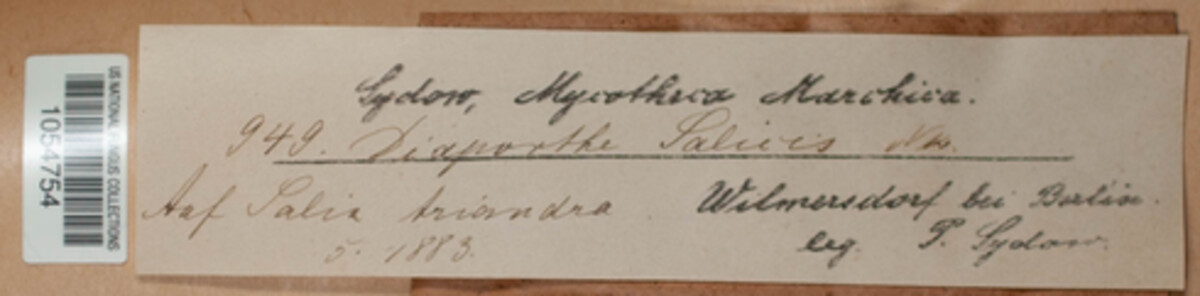 Sydow, Mycotheca Marchica.
949. Diaporthe Salicis Nke.
Auf Salix triandra.
5. 1883.
Wilmersdorf bei Berlin.
leg. P. Sydow.
US NATIONAL FUNGUS COLLECTIONS
1054754